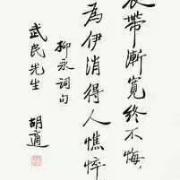 衣帶漸寬終不悔，
為伊消得人憔悴
柳永詞句
武民先生
胡適